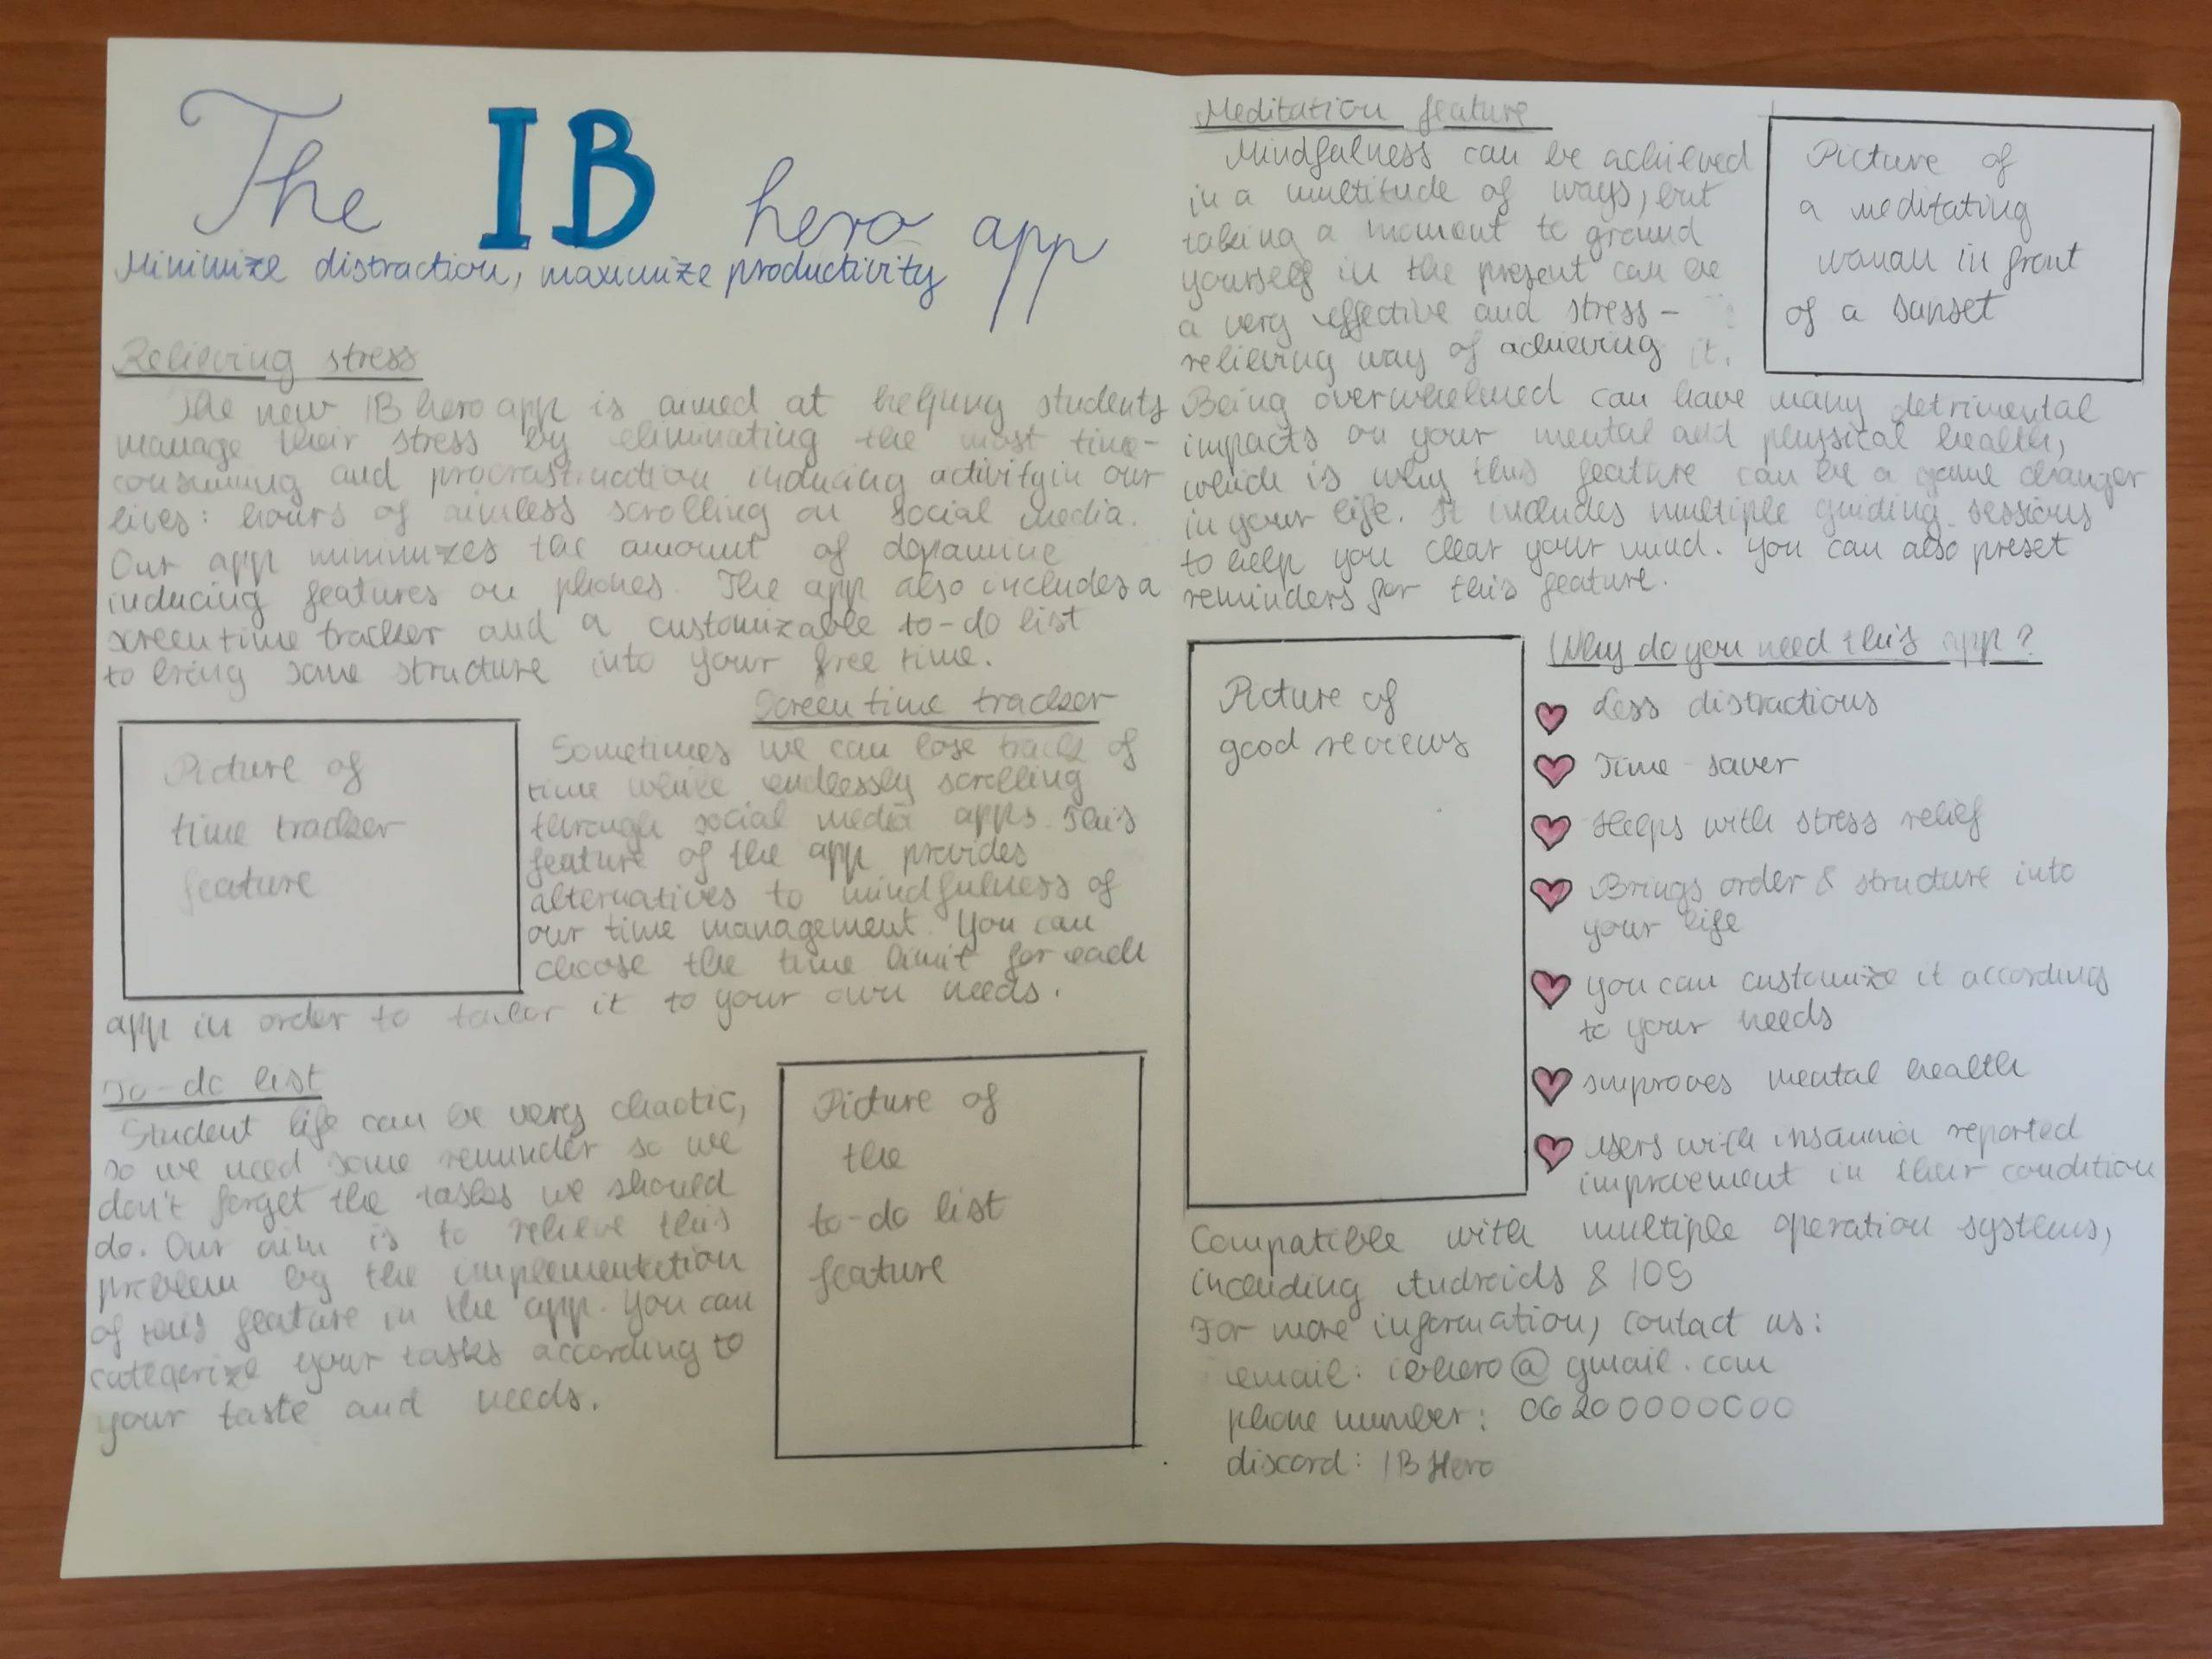 The IB hero app
Minimize distraction, maximize productivity
Relieving stress
The new IB hero app is aimed at helping students
manage their stress by eliminating the most time-
consuming and procrastination inducing activity in our
lives: hours of aimless scrolling on social media.
Our app minimizes the amount of dopamine
inducing features on phones. The app also includes a
screen time tracker and a customizable to-do list
to bring some structure into your free time.
Screen time tracker
Picture of
time tracker
feature
Sometimes we can lose track of
time while endlessly scrolling
through social media apps. This
feature of the app provides
alternatives to mindfulness of
our time management. You can
choose the time limit for each
app in order to tailor it to your own needs.
To-do list
Student life can be very chaotic,
so we need some reminder so we
don't forget the tasks we should
do. Our aim is to relieve this
problem by the implementation
of this feature in the app. You can
categorize your tasks according to
your taste and needs.
Picture of
the
to-do list
feature
Meditation feature
Mindfulness can be achieved
in a multitude of ways, but
taking a moment to ground
yourself in the present can be
a very effective and stress-
relieving way of achieving it.
Picture of
a meditating
woman in front
of a sunset
Being overwhelmed can have many detrimental
impacts on your mental and physical health,
which is why this feature can be a game changer
in your life. It includes multiple guiding sessions
to help you clear your mind. You can also preset
reminders for this feature.
Picture of
good reviews
Why do you need this app?
Less distractions
Time-saver
Helps with stress relief
Brings order & structure into
your life
You can customize it according
to your needs
Improves mental health
Users with insomnia reported
improvement in their condition
Compatible with multiple operation systems,
including Androids & IOS
For more information, contact us:
email: ibhero@gmail.com
phone number: 06 20 0000000
discord: IB Hero